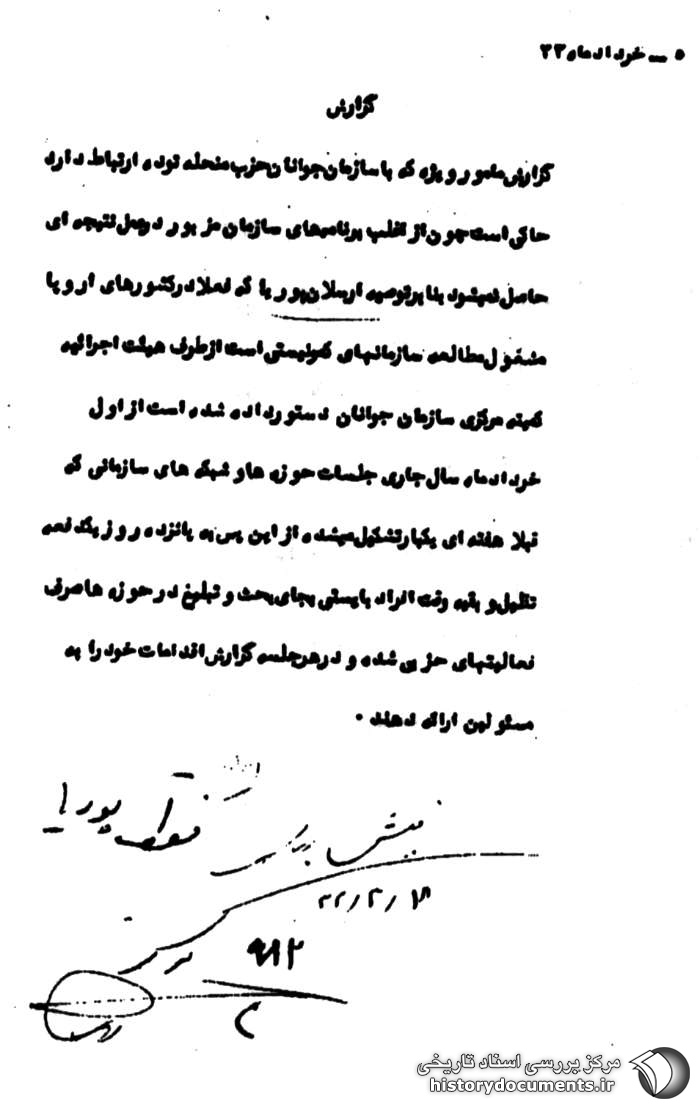 ۵ ــ خردادماه ۳۳
گزارش
گزارش مامور ویژه که با سازمان جوانان حزب منحله توده ارتباط دارد
حاکی است چون از اغلب برنامه‌های سازمان مزبور در عمل نتیجه ای
حاصل نمیشود بنا بر توصیه ارسلان پوریا که فعلا در کشورهای اروپا
مشغول مطالعه سازمانهای کمونیستی است از طرف هیئت اجرائیه
کمیته مرکزی سازمان جوانان دستور داده شده است از اول
خردادماه سال جاری جلسات حوزه ها و شبکه های سازمانی که
قبلا هفته ای یکبار تشکیل میشده از این پس به پانزده روز یکدفعه
تقلیل و بقیه وقت افراد بایستی بجای بحث و تبلیغ در حوزه ها صرف
فعالیتهای حزبی شده و در هر جلسه گزارش اقدامات خود را به
مسئولین ارائه دهند ۰
پوریا
۹۸۲
مرکز بررسی اسناد تاریخی
historydocuments.ir